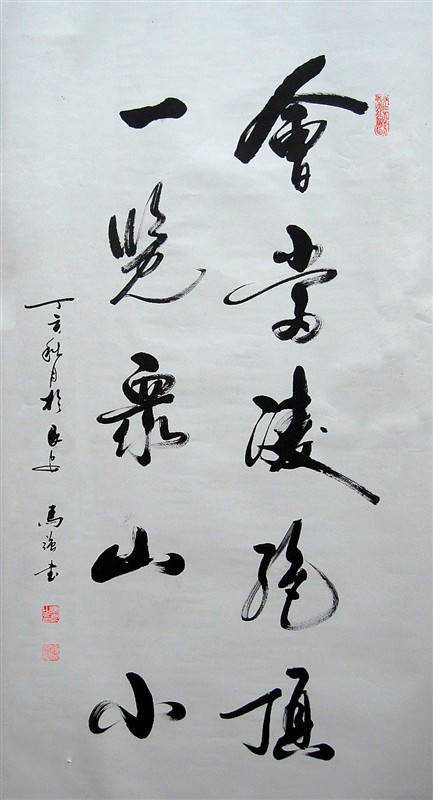 會當凌絕頂
一覽衆山小
丁亥秋月於長安 馬強書